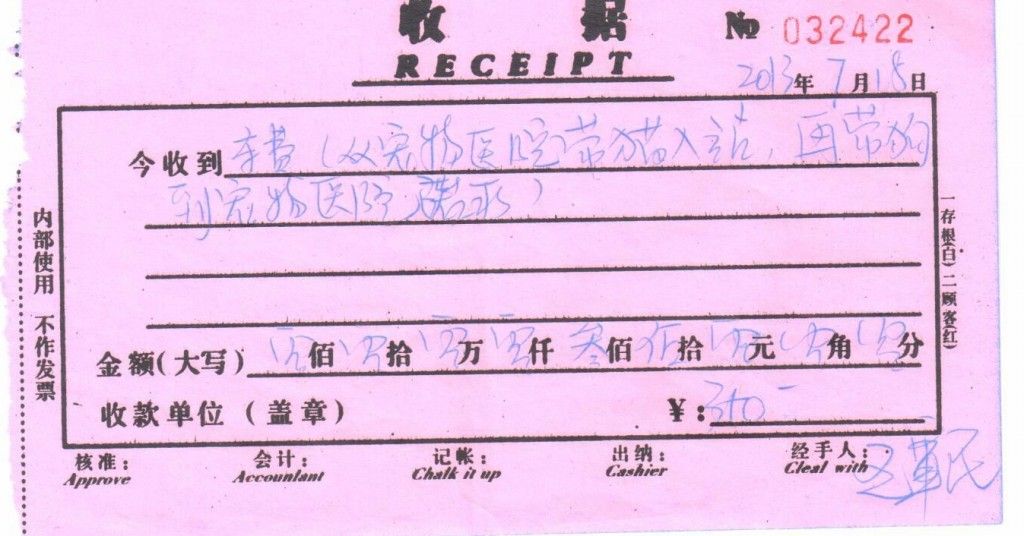 收据
№ 032422
RECEIPT
2013年7月18日
今收到 车费（从宠物医院带猫入站，再带狗
到宠物医院
金额（大写） 零佰零拾零万零仟叁佰伍拾零元零角零分
收款单位（盖章） ￥：350
核准： 会计： 记帐： 出纳： 经手人：
Approve Accountant Chalk it up Cashier Cleal with
内部使用 不作发票
一存根（白）二顾客（红）